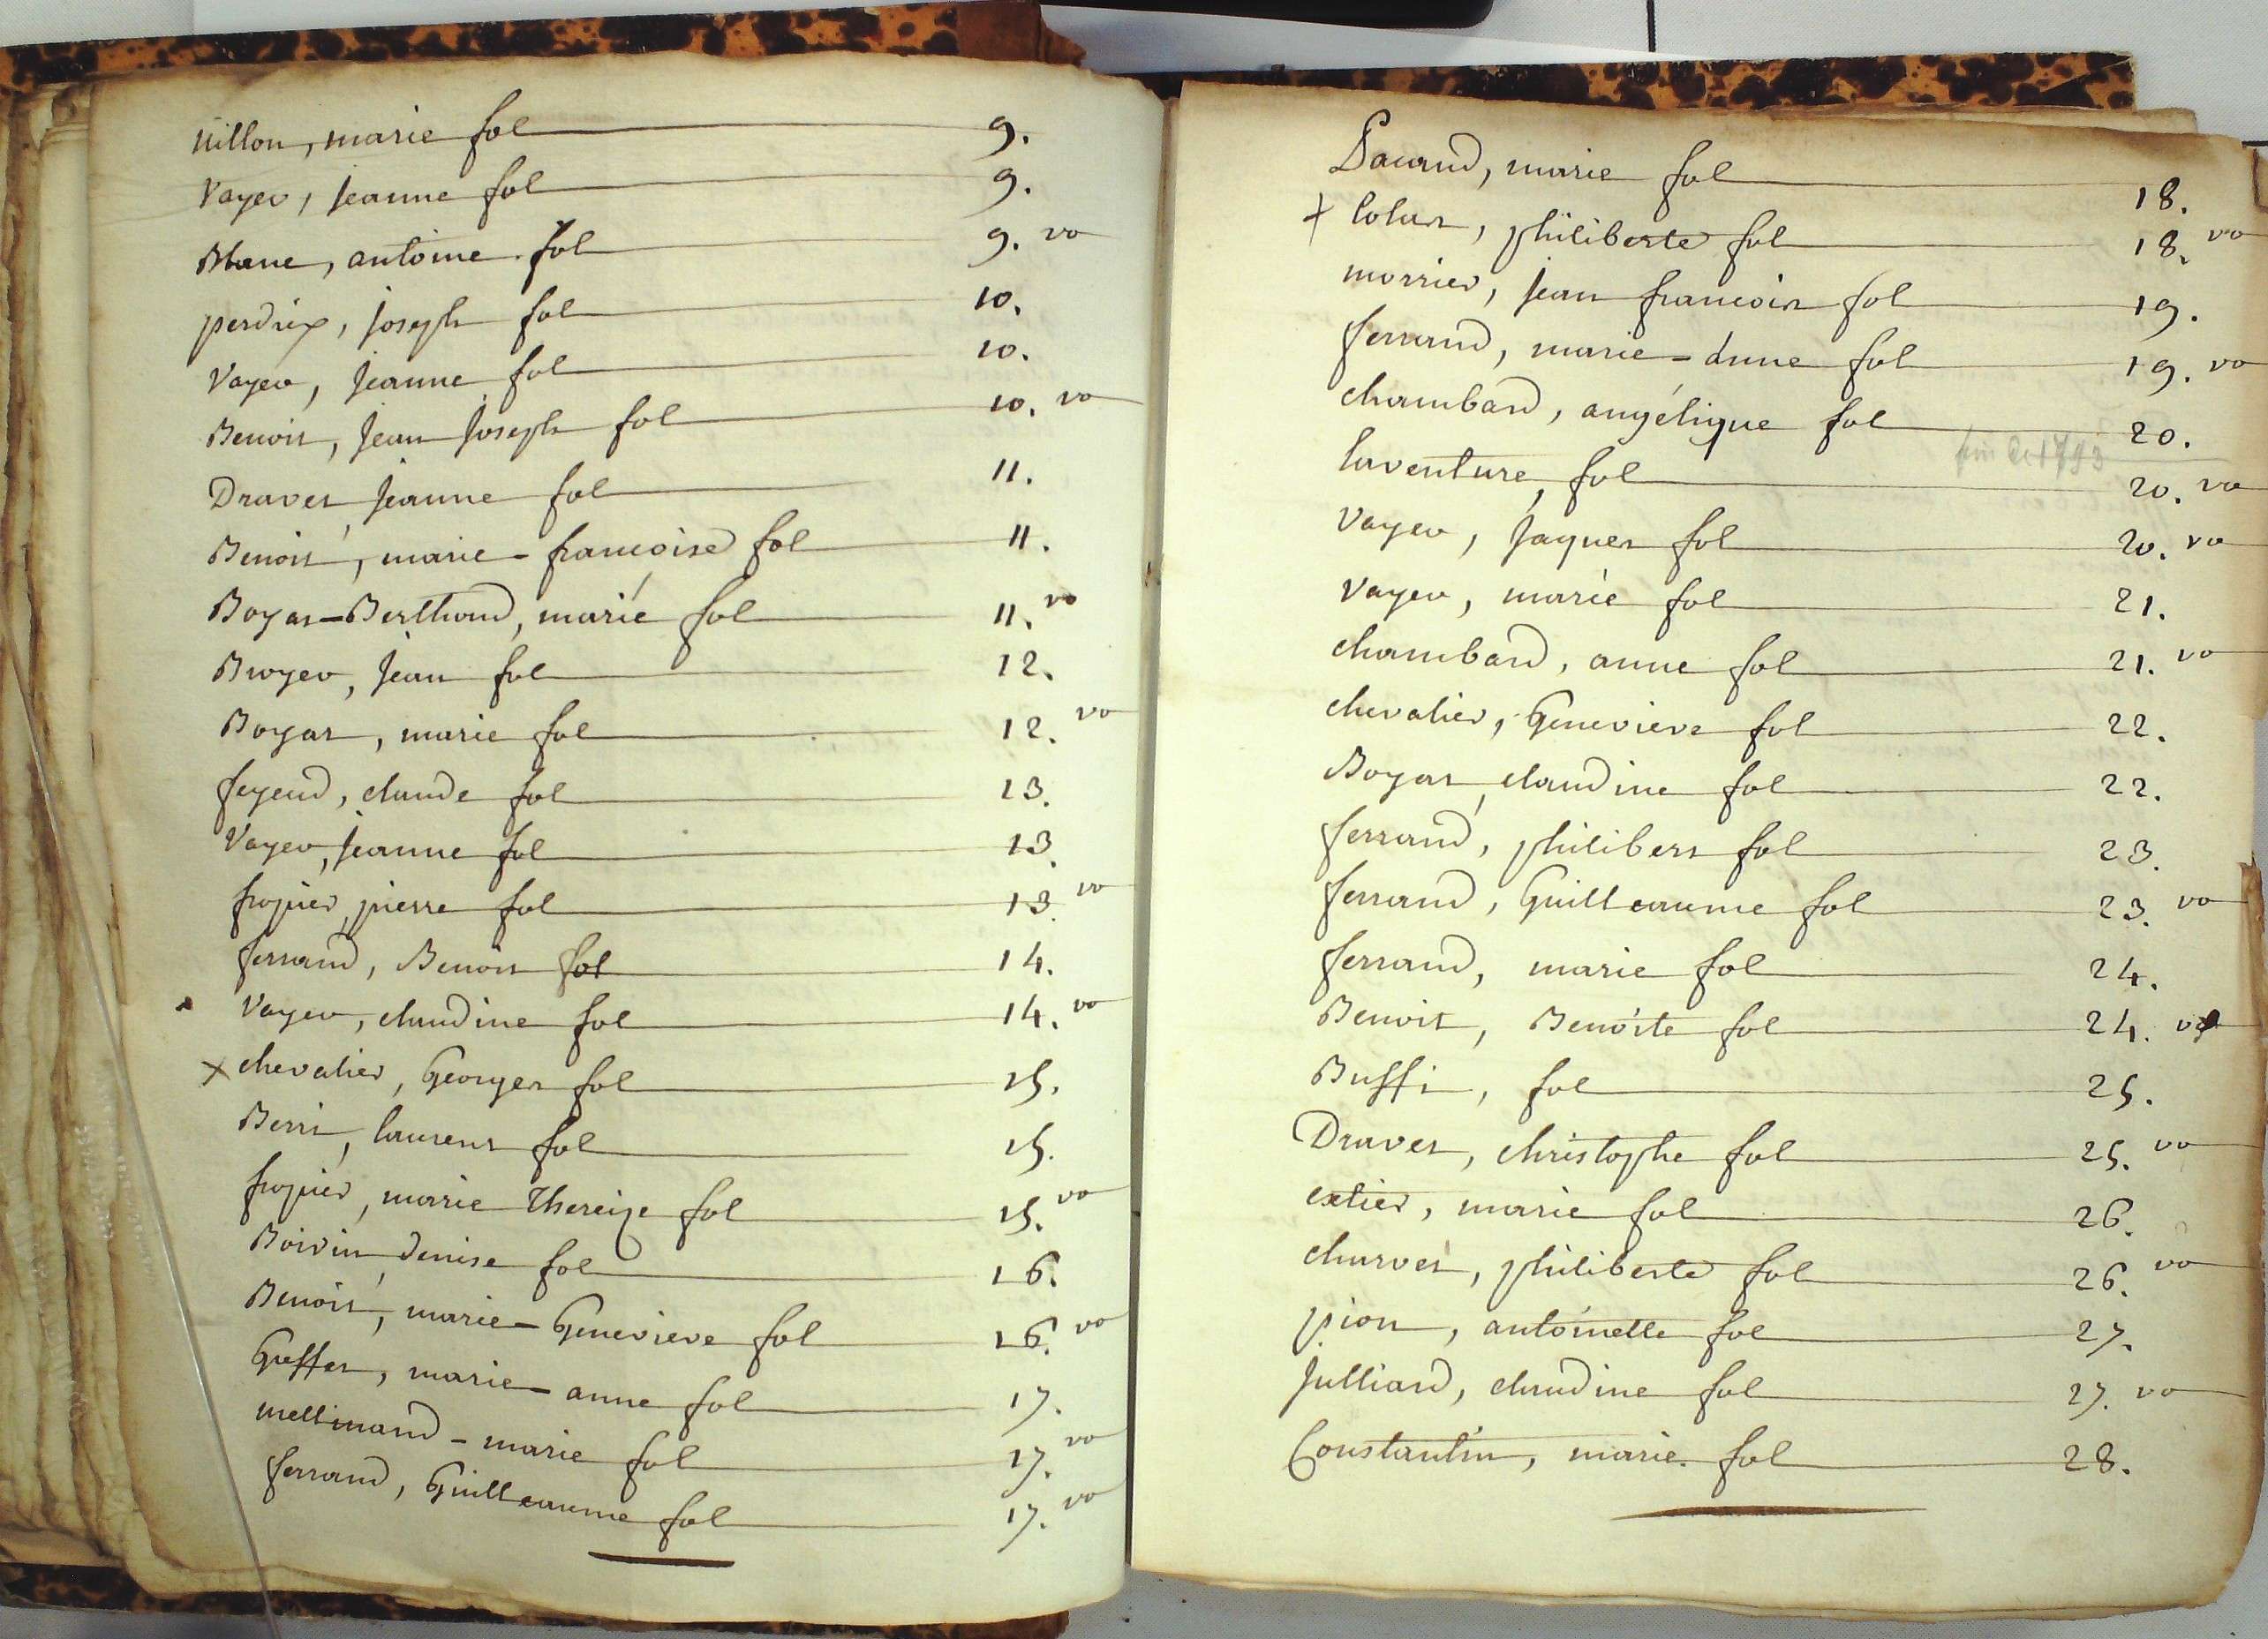 nillon, marie fol 9.
Vayer, jeanne fol 9.
Blanc, antoine fol 9. vo
perdrix, joseph fol 10.
Vayer, jeanne fol 10.
Benoit, jean joseph fol 10. vo
Dravet, jeanne fol 11.
Benoit, marie-francoise fol 11.
Boyat-Berthoud, marie fol 11. vo
Broyer, jean fol 12.
Boyat, marie fol 12. vo
feyeud, claude fol 13.
Vayer, jeanne fol 13.
fropier, pierre fol 13. vo
ferrand, Benoit fol 14.
Vayer, claudine fol 14. vo
x chevalier, Georges fol 15.
Berri, laurent fol 15.
fropier, marie Thereize fol 15. vo
Boivin, denise fol 16.
Benoit, marie-Genevieve fol 16. vo
Geffet, marie-anne fol 17.
mellinand-marie fol 17. vo
ferrand, Guilleaume fol 17. vo
marie fol 18.
+ Colas, philiberte fol 18. vo
morrier, jean francois fol 19.
ferrand, marie-anne fol 19. vo
chambard, angélique fol 20.
fin de 1793
laventure, fol 20. vo
Vayer, jaques fol 20. vo
Vayer, marie fol 21.
chambard, anne fol 21. vo
chevalier, Genevieve fol 22.
Boyat, claudine fol 22.
ferrand, philibert fol 23.
ferrand, Guilleaume fol 23. vo
ferrand, marie fol 24.
Benoit, Benoite fol 24. vo
Buffi, fol 25.
Dravet, christophe fol 25. vo
extier, marie fol 26.
charvet, philiberte fol 26. vo
pion, antoinette fol 27.
julliard, claudine fol 27. vo
Constantin, marie. fol 28.